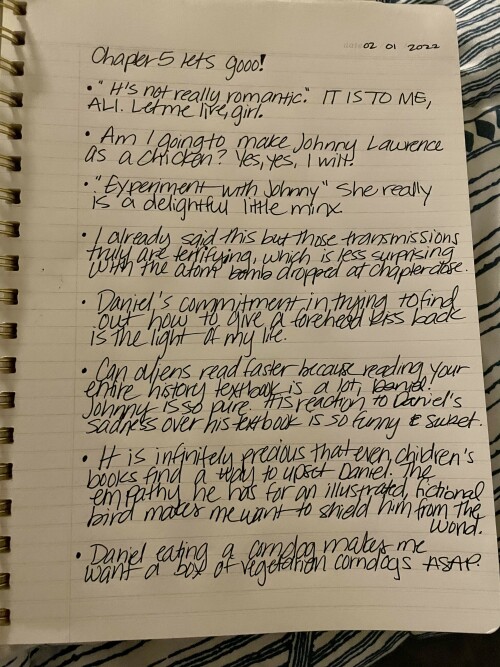 date 02 01 2022
Chapter 5 lets gooo!
• "It's not really romantic." IT IS TO ME,
ALI. Let me live, girl.
• Am I going to make Johnny Lawrence
as a chicken? Yes, yes, I will!
• "Experiment with Johnny" She really
is a delightful little minx.
• I already said this but those transmissions
truly are terrifying, which is less surprising
with the atom bomb dropped at chapter close.
• Daniel's commitment in trying to find
out how to give a forehead kiss back
is the light of my life.
• Can aliens read faster because reading your
entire history textbook is a lot, Daniel!
Johnny is so pure. His reaction to Daniel's
sadness over his textbook is so funny & sweet.
• It is infinitely precious that even children's
books find a way to upset Daniel. The
empathy he has for an illustrated, fictional
bird makes me want to shield him from the
world.
• Daniel eating a corndog makes me
want a box of vegetarian corndogs ASAP.